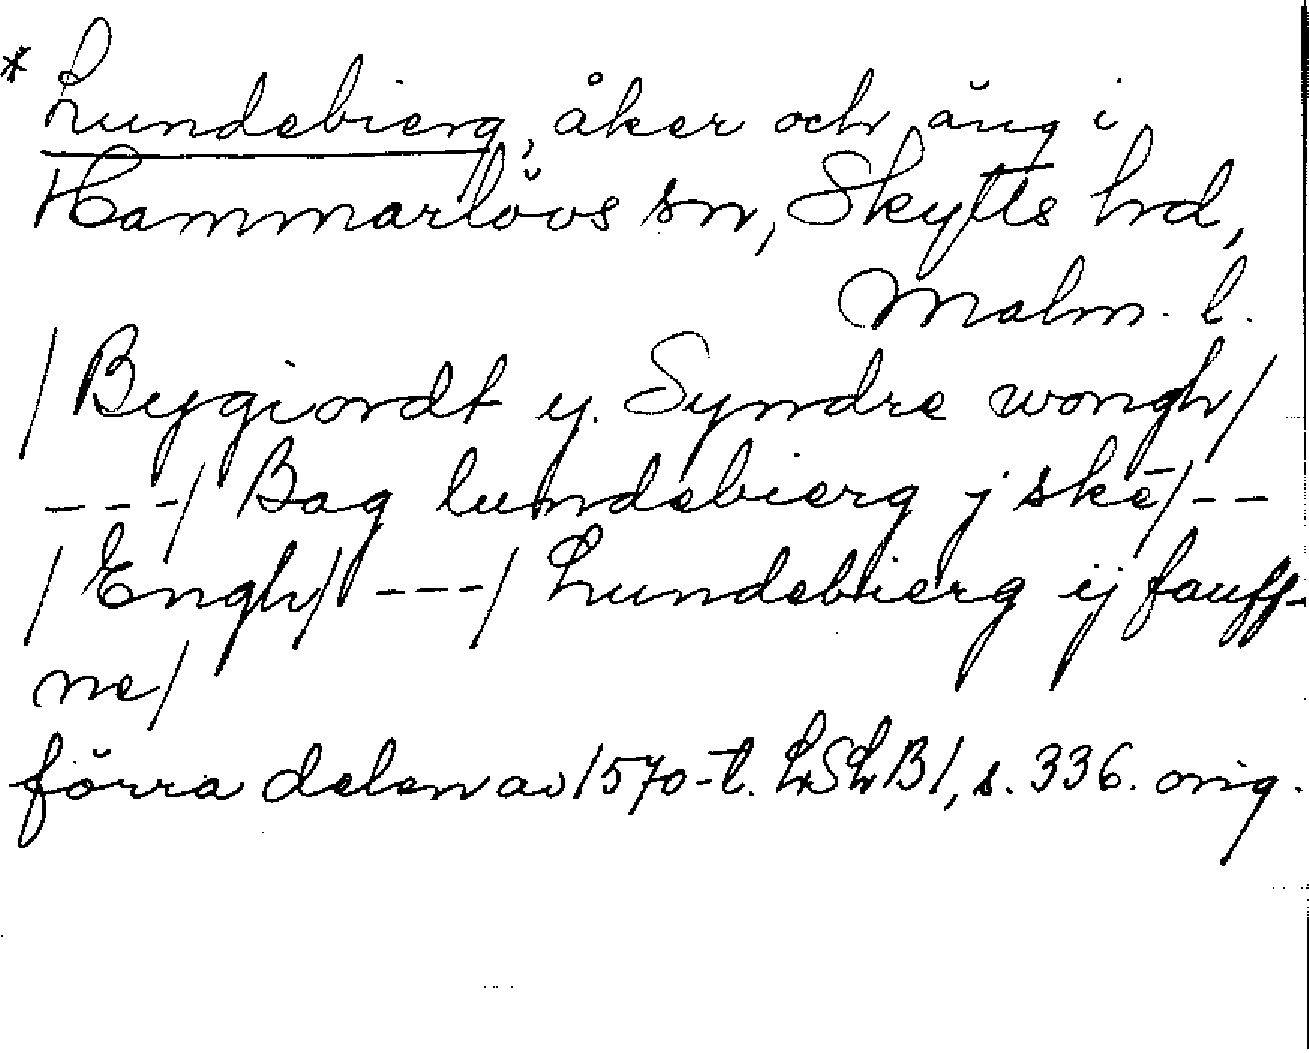 * Lundebierg, åker och äng i
Hammarlövs sn, Skytts hd,
Malm. l.
/ Bygiordt y. Syndre wongh/
---/ Bag lundebierg j ske̅/--
/ Engh/ ---/ Lundebierg ij fauff-
ne/
förra delen av 1570-t. LSLB1, s. 336. orig.